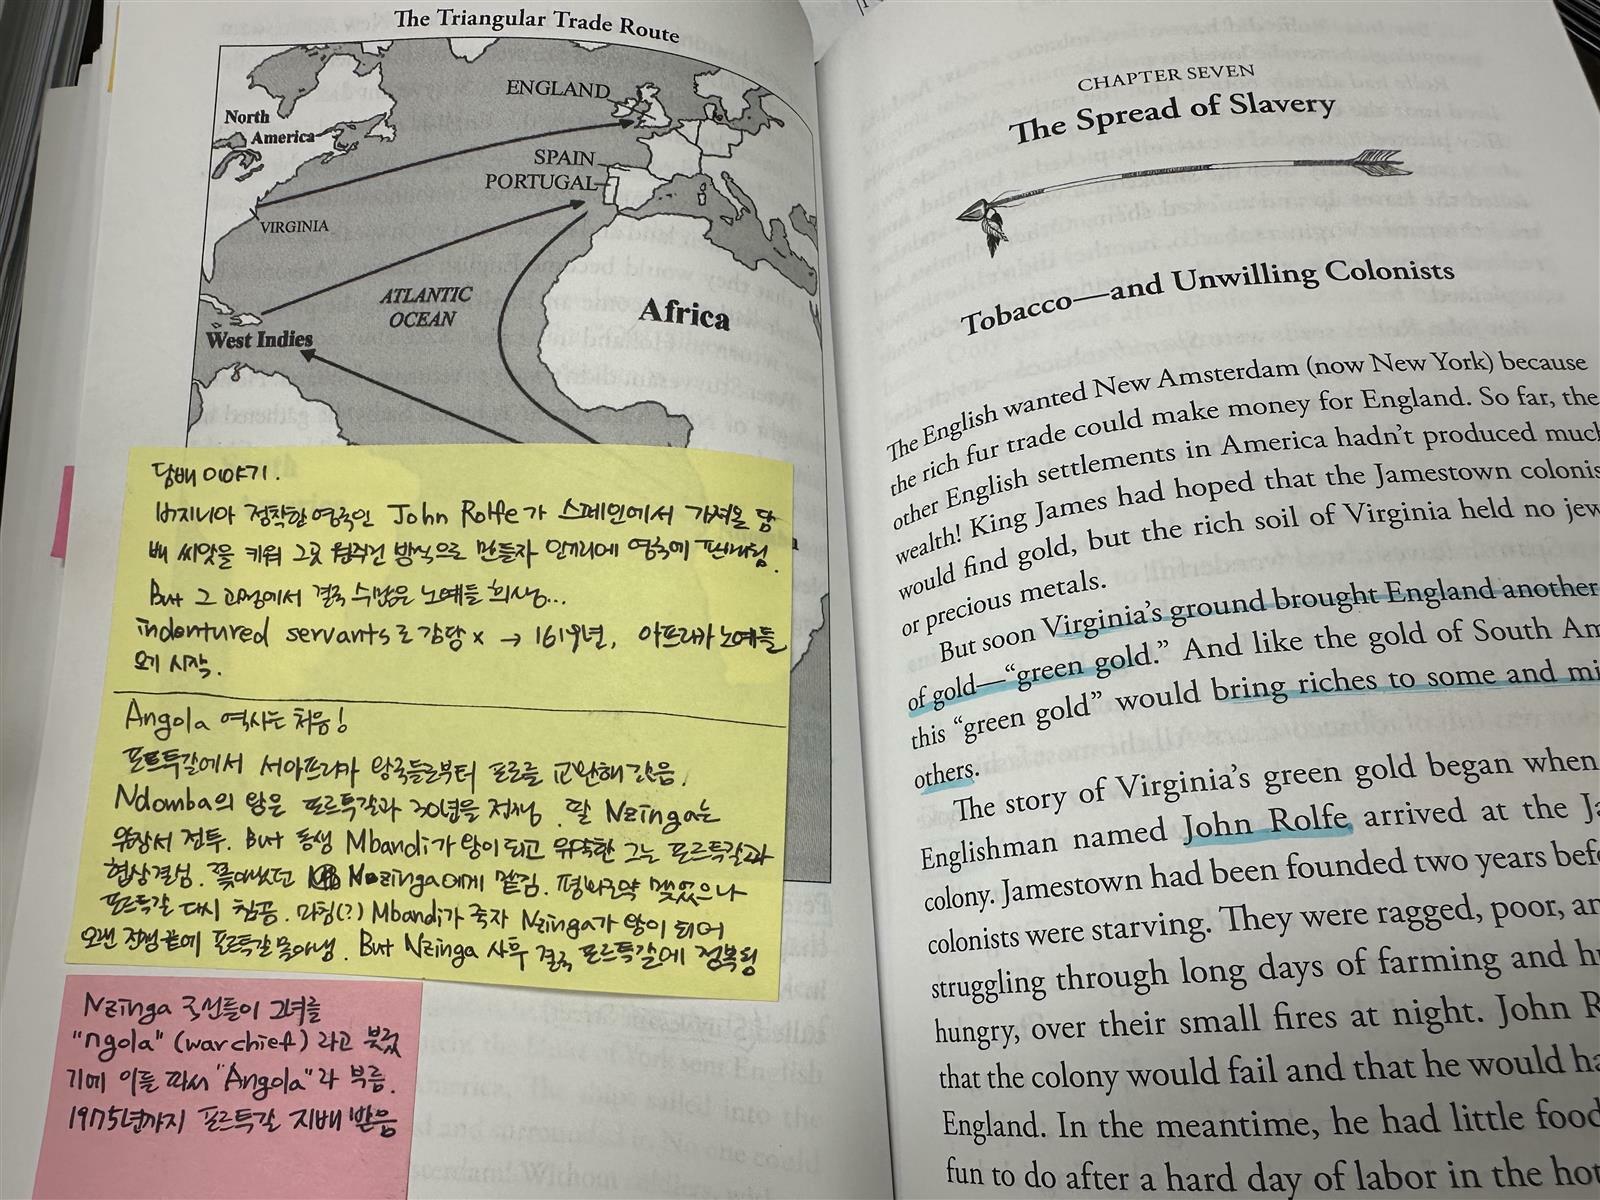 The Triangular Trade Route
North
America
ENGLAND
SPAIN
PORTUGAL
VIRGINIA
ATLANTIC
OCEAN
Africa
West Indies
담배 이야기.
버지니아 정착한 영국인 John Rolfe가 스페인에서 가져온 담
배 씨앗을 키워 그곳 원주민 방식으로 만들자 인기리에 영국에 판매됨.
But 그 과정에서 결국 수많은 노예들 희생...
indentured servants로 감당 x → 1619년, 아프리카 노예들
오기 시작.
Angola 역사는 처음!
포르투갈에서 서아프리카 왕국들로부터 포로를 교환해 갔음.
Ndomba의 왕은 포르투갈과 30년을 전쟁. 딸 Nzinga는
앞장서 전투. But 동생 Mbandi가 왕이 되고 유약한 그는 포르투갈과
협상결심. 쫓아냈던 Nzinga에게 맡김. 평화조약 맺었으나
포르투갈 다시 침공. 마침(?) Mbandi가 죽자 Nzinga가 왕이 되어
오랜 전쟁 끝에 포르투갈 몰아냄. But Nzinga 사후 결국 포르투갈에 정복됨
Nzinga 국민들이 그녀를
"ngola" (war chief) 라고 불렀
기에 이를 따서 "Angola"라 부름.
1975년까지 포르투갈 지배 받음
CHAPTER SEVEN
The Spread of Slavery
Tobacco—and Unwilling Colonists
The English wanted New Amsterdam (now New York) because
the rich fur trade could make money for England. So far, the
other English settlements in America hadn't produced much
wealth! King James had hoped that the Jamestown colonis
would find gold, but the rich soil of Virginia held no jew
or precious metals.
But soon Virginia's ground brought England another
of gold—"green gold." And like the gold of South Am
this "green gold" would bring riches to some and mi
others.
The story of Virginia's green gold began when
Englishman named John Rolfe arrived at the Ja
colony. Jamestown had been founded two years befo
colonists were starving. They were ragged, poor, an
struggling through long days of farming and hu
hungry, over their small fires at night. John R
that the colony would fail and that he would ha
England. In the meantime, he had little food
fun to do after a hard day of labor in the hot